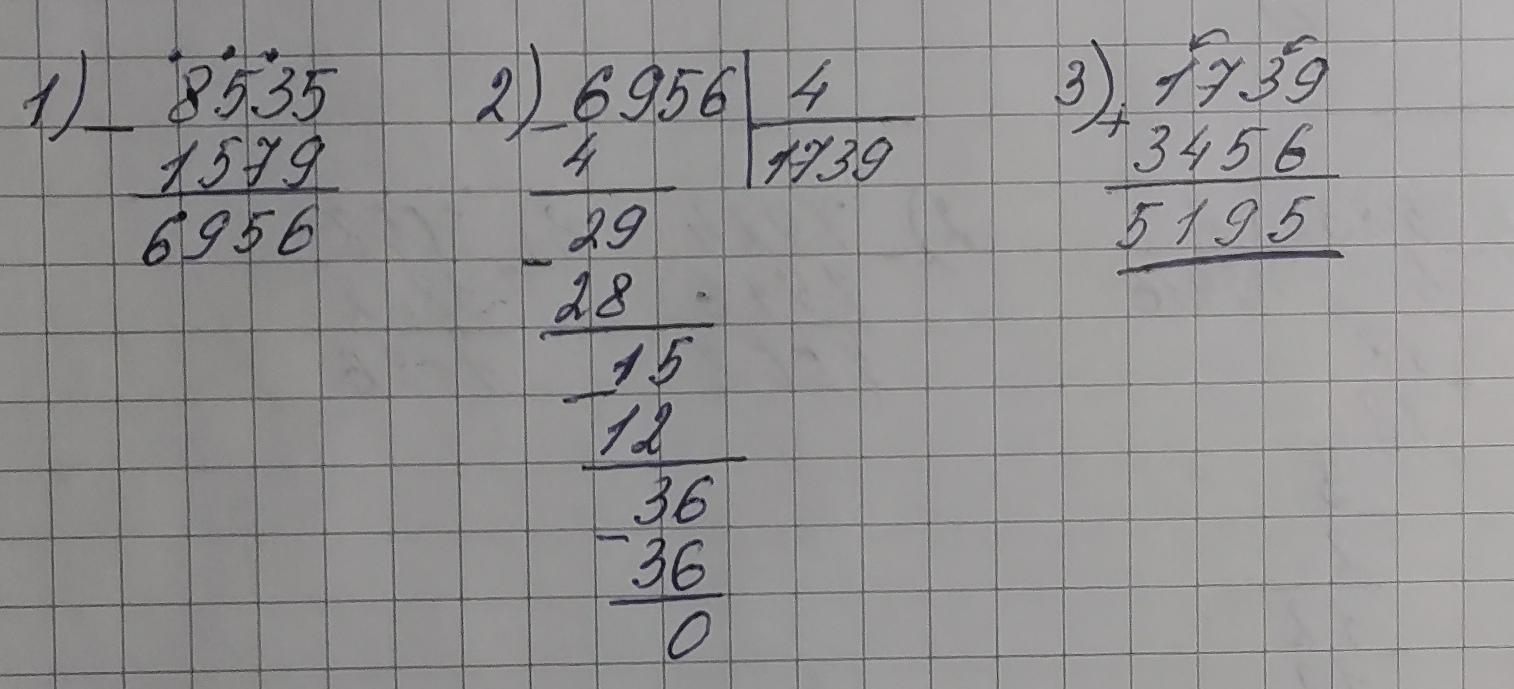 1) _ 8535
1579
6956
2) _ 6956 | 4
4
1739
_ 29
28
_ 15
12
_ 36
36
0
3) + 1739
3456
5195